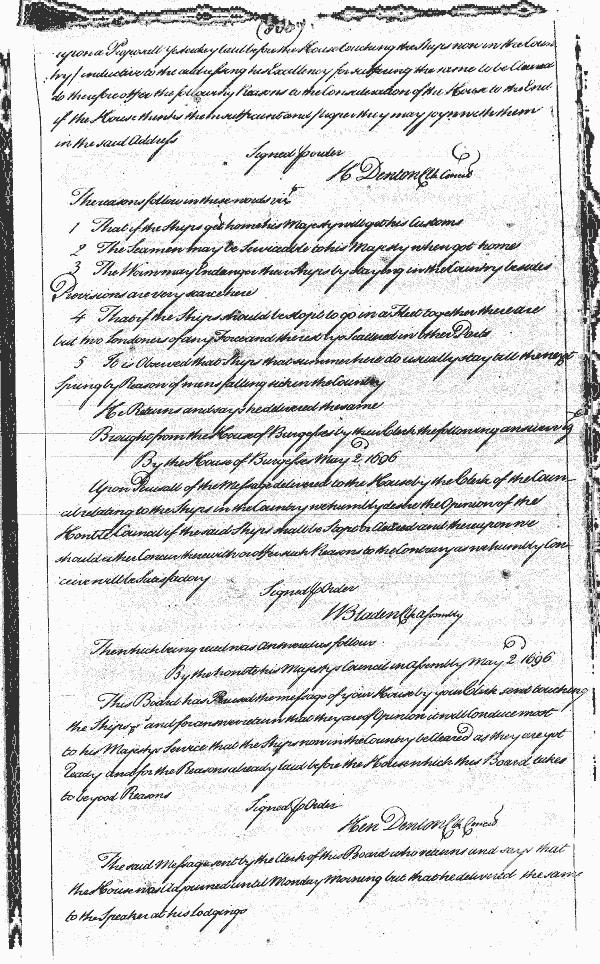 upon a Proposall yesterday laid before the House touching the Ships now in the Coun
try / inductive to the addressing his Excellency for suffering the same to be Cleared
do therefore offer the following Reasons to the Consideration of the House to the End
if the House thinks them sufficient and proper they may joyn with them
in the said Address
Signed p order
H Denton Clk Concil
The reasons follow in these words vizt
1 That if the Ships get home his Majesty will get his Customs
2 The Seamen may be Serviceable to his Majesty when got home
3 The Worm may Endanger their Ships by staying in the Country besides
Provisions are very scarce here
4 That if the Ships should be stopt to go in a Fleet together there are
but two Londoners of any Force and the rest by scattered in other Ports
5 It is Observed that Ships that summer here do usually stay till the next
Spring by Reason of mens falling sick in the Country
He Returns and says he delivered the same
Brought from the House of Burgesses by their Clerk the following answer vizt
By the House of Burgesses May 2d 1696
Upon Perusall of the Message delivered to the House by the Clerk of the Coun
cil relating to the Ships in the Country we humbly desire the Opinion of the
Honble Council if the said Ships shall be Stopt or Cleared and thereupon we
should either Concur therewith or offer such Reasons to the Contrary as we humbly Con
ceive will be Satisfactory
Signed p Order
W Bladen Clk assembly
Then which being read was answered as follows
By the honoble his Majestys Council in assembly May 2d 1696
This Board has Read the message of your House by your Clerk send touching
the Ships &c and for answer return that they are of Opinion it will Conduce most
to his Majestys Service that the Ships now in the Country be Cleared as they are got
Ready and for the Reasons already laid before the House which this Board takes
to be good Reasons
Signed p Order
Hen Denton Clk Concil
The said Message sent by the Clerk of this Board who returns and says that
the House was adjourned until Monday Morning but that he delivered the same
to the Speaker at his lodgings